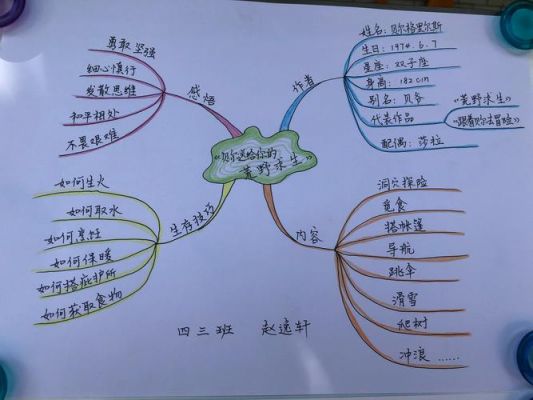 《贝尔送给你的
荒野求生》
作者
姓名：贝尔格里尔斯
生日：1974.6.7
星座：双子座
身高：182cm
别名：贝爷
代表作品
《荒野求生》
《跟着贝尔去冒险》
配偶：莎拉
感悟
勇敢坚强
细心慎行
发散思维
和平相处
不畏艰难
生存技巧
如何生火
如何取水
如何烹饪
如何保暖
如何搭庇护所
如何获取食物
内容
洞穴探险
觅食
搭帐篷
导航
跳伞
滑雪
爬树
冲浪……
四三班 赵逸轩